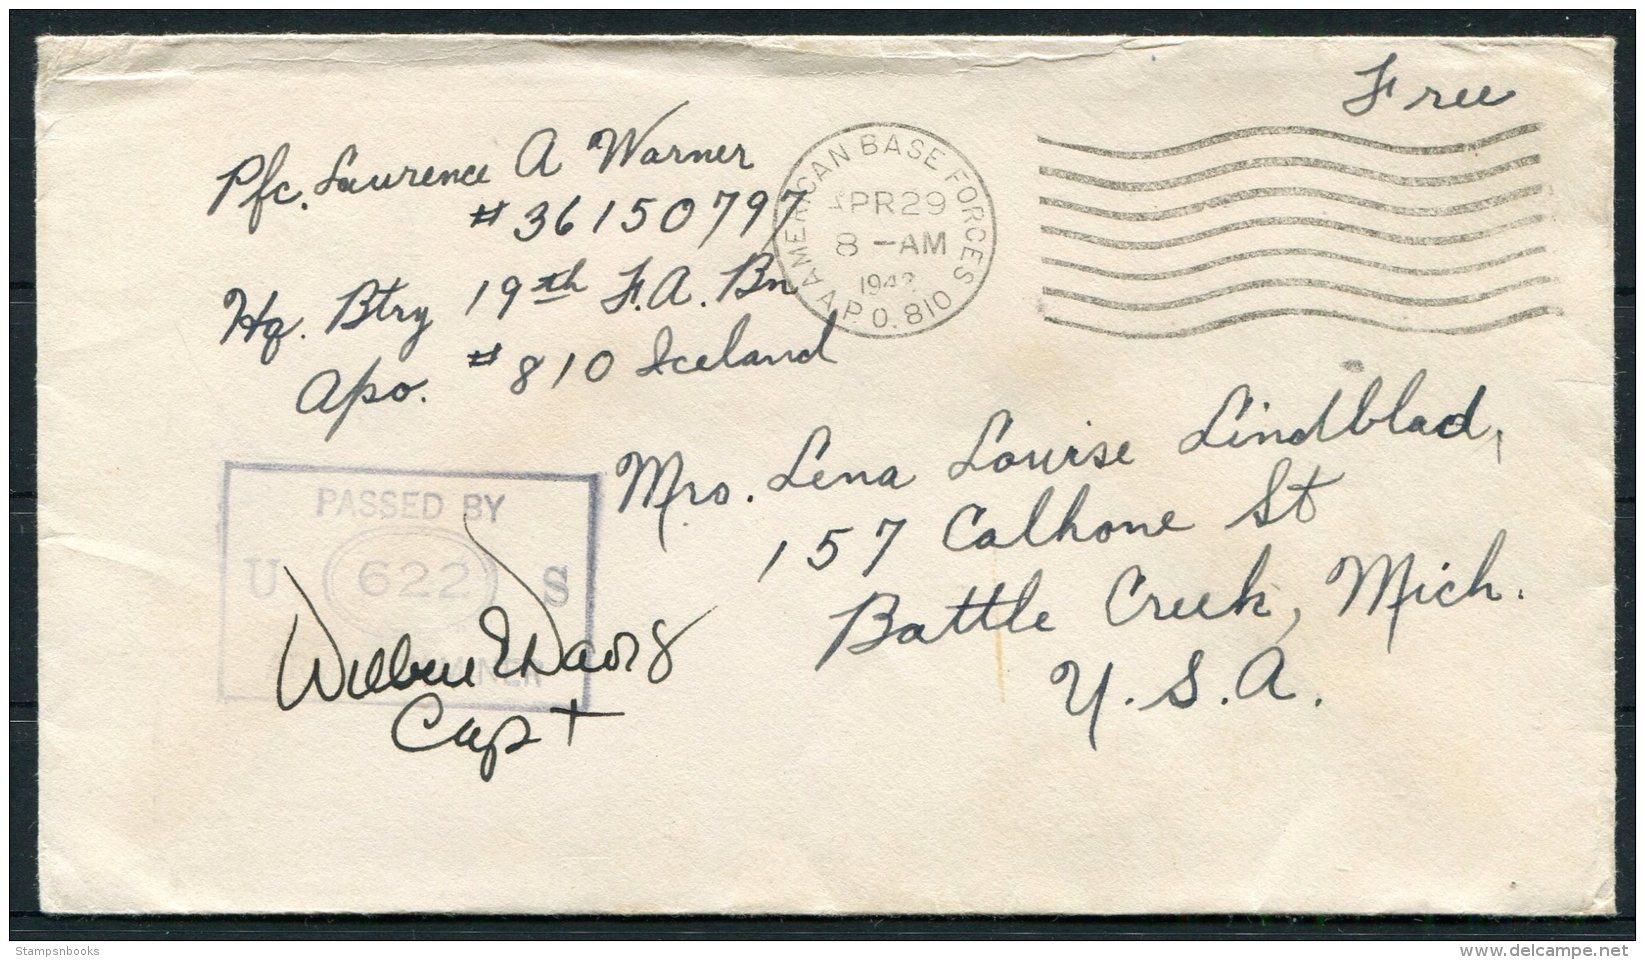 Free
Pfc. Laurence A Warner
#36150797
Hq. Btry 19th F.A. Bn
Apo. #810 Iceland
AMERICAN BASE FORCES
APR 29
8 - AM
1942
A.P.O. 810
Mrs. Lena Louise Lindblad,
157 Calhone St
Battle Creek, Mich.
U.S.A.
PASSED BY
U 622 S
Capt
Stampsnbooks
www.delcampe.net